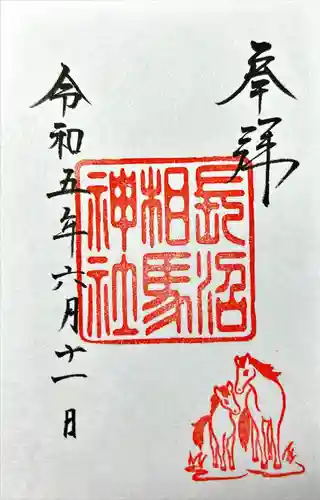 奉拝
長沼
相馬
神社
令和五年六月十一日